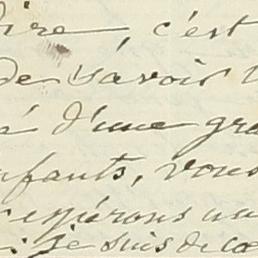 dire, c'est
de savoir
à d'une gra
nfants, vous
espérons un
: je suis de cœ